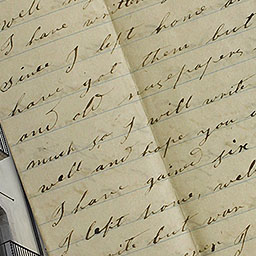 well my
I have written
since I left home a
have got them but
and old newspapers
much so I will write
well and hope you a
I have gained six
I left home, well
write but war